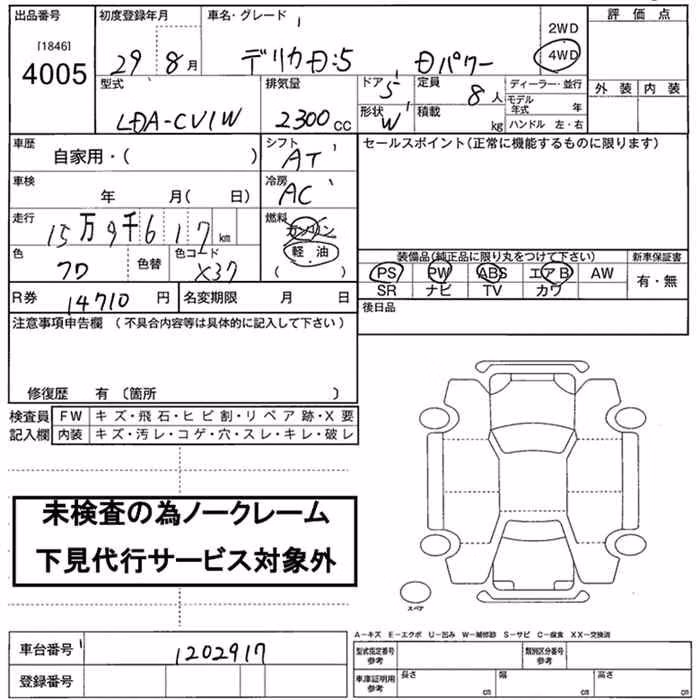 出品番号 初度登録年月 車名・グレード 評価点
[1846]
4005
29 8月 デリカD:5 Dパワー 2WD 4WD
型式 排気量 ドア 5 定員 8人 ディーラー・並行 外装 内装
LDA-CV1W 2300cc 形状 W 積載 kg モデル年式 年
ハンドル 左・右
車歴 自家用・( ) シフト AT セールスポイント(正常に機能するものに限ります)
車検 年 月( 日) 冷房 AC
走行 15万9千617km 燃料 ガソリン
軽油
( )
色 色替 色コード X37
装備品(純正品に限り丸をつけて下さい) 新車保証書
PS PW ABS エアB AW 有・無
SR ナビ TV カワ
R券 14710円 名変期限 月 日 後日品
注意事項申告欄 (不具合内容等は具体的に記入して下さい)
修復歴 有〔箇所 〕
検査員 FW キズ・飛石・ヒビ割・リペア跡・X要
記入欄 内装 キズ・汚レ・コゲ・穴・スレ・キレ・破レ
未検査の為ノークレーム
下見代行サービス対象外
スペア
A-キズ E-エクボ U-凹み W-補修跡 S-サビ C-腐食 XX-交換済
車台番号 1202917 型式指定番号 参考 類別区分番号 参考
登録番号 車庫証明用 参考 長さ cm 幅 cm 高さ cm